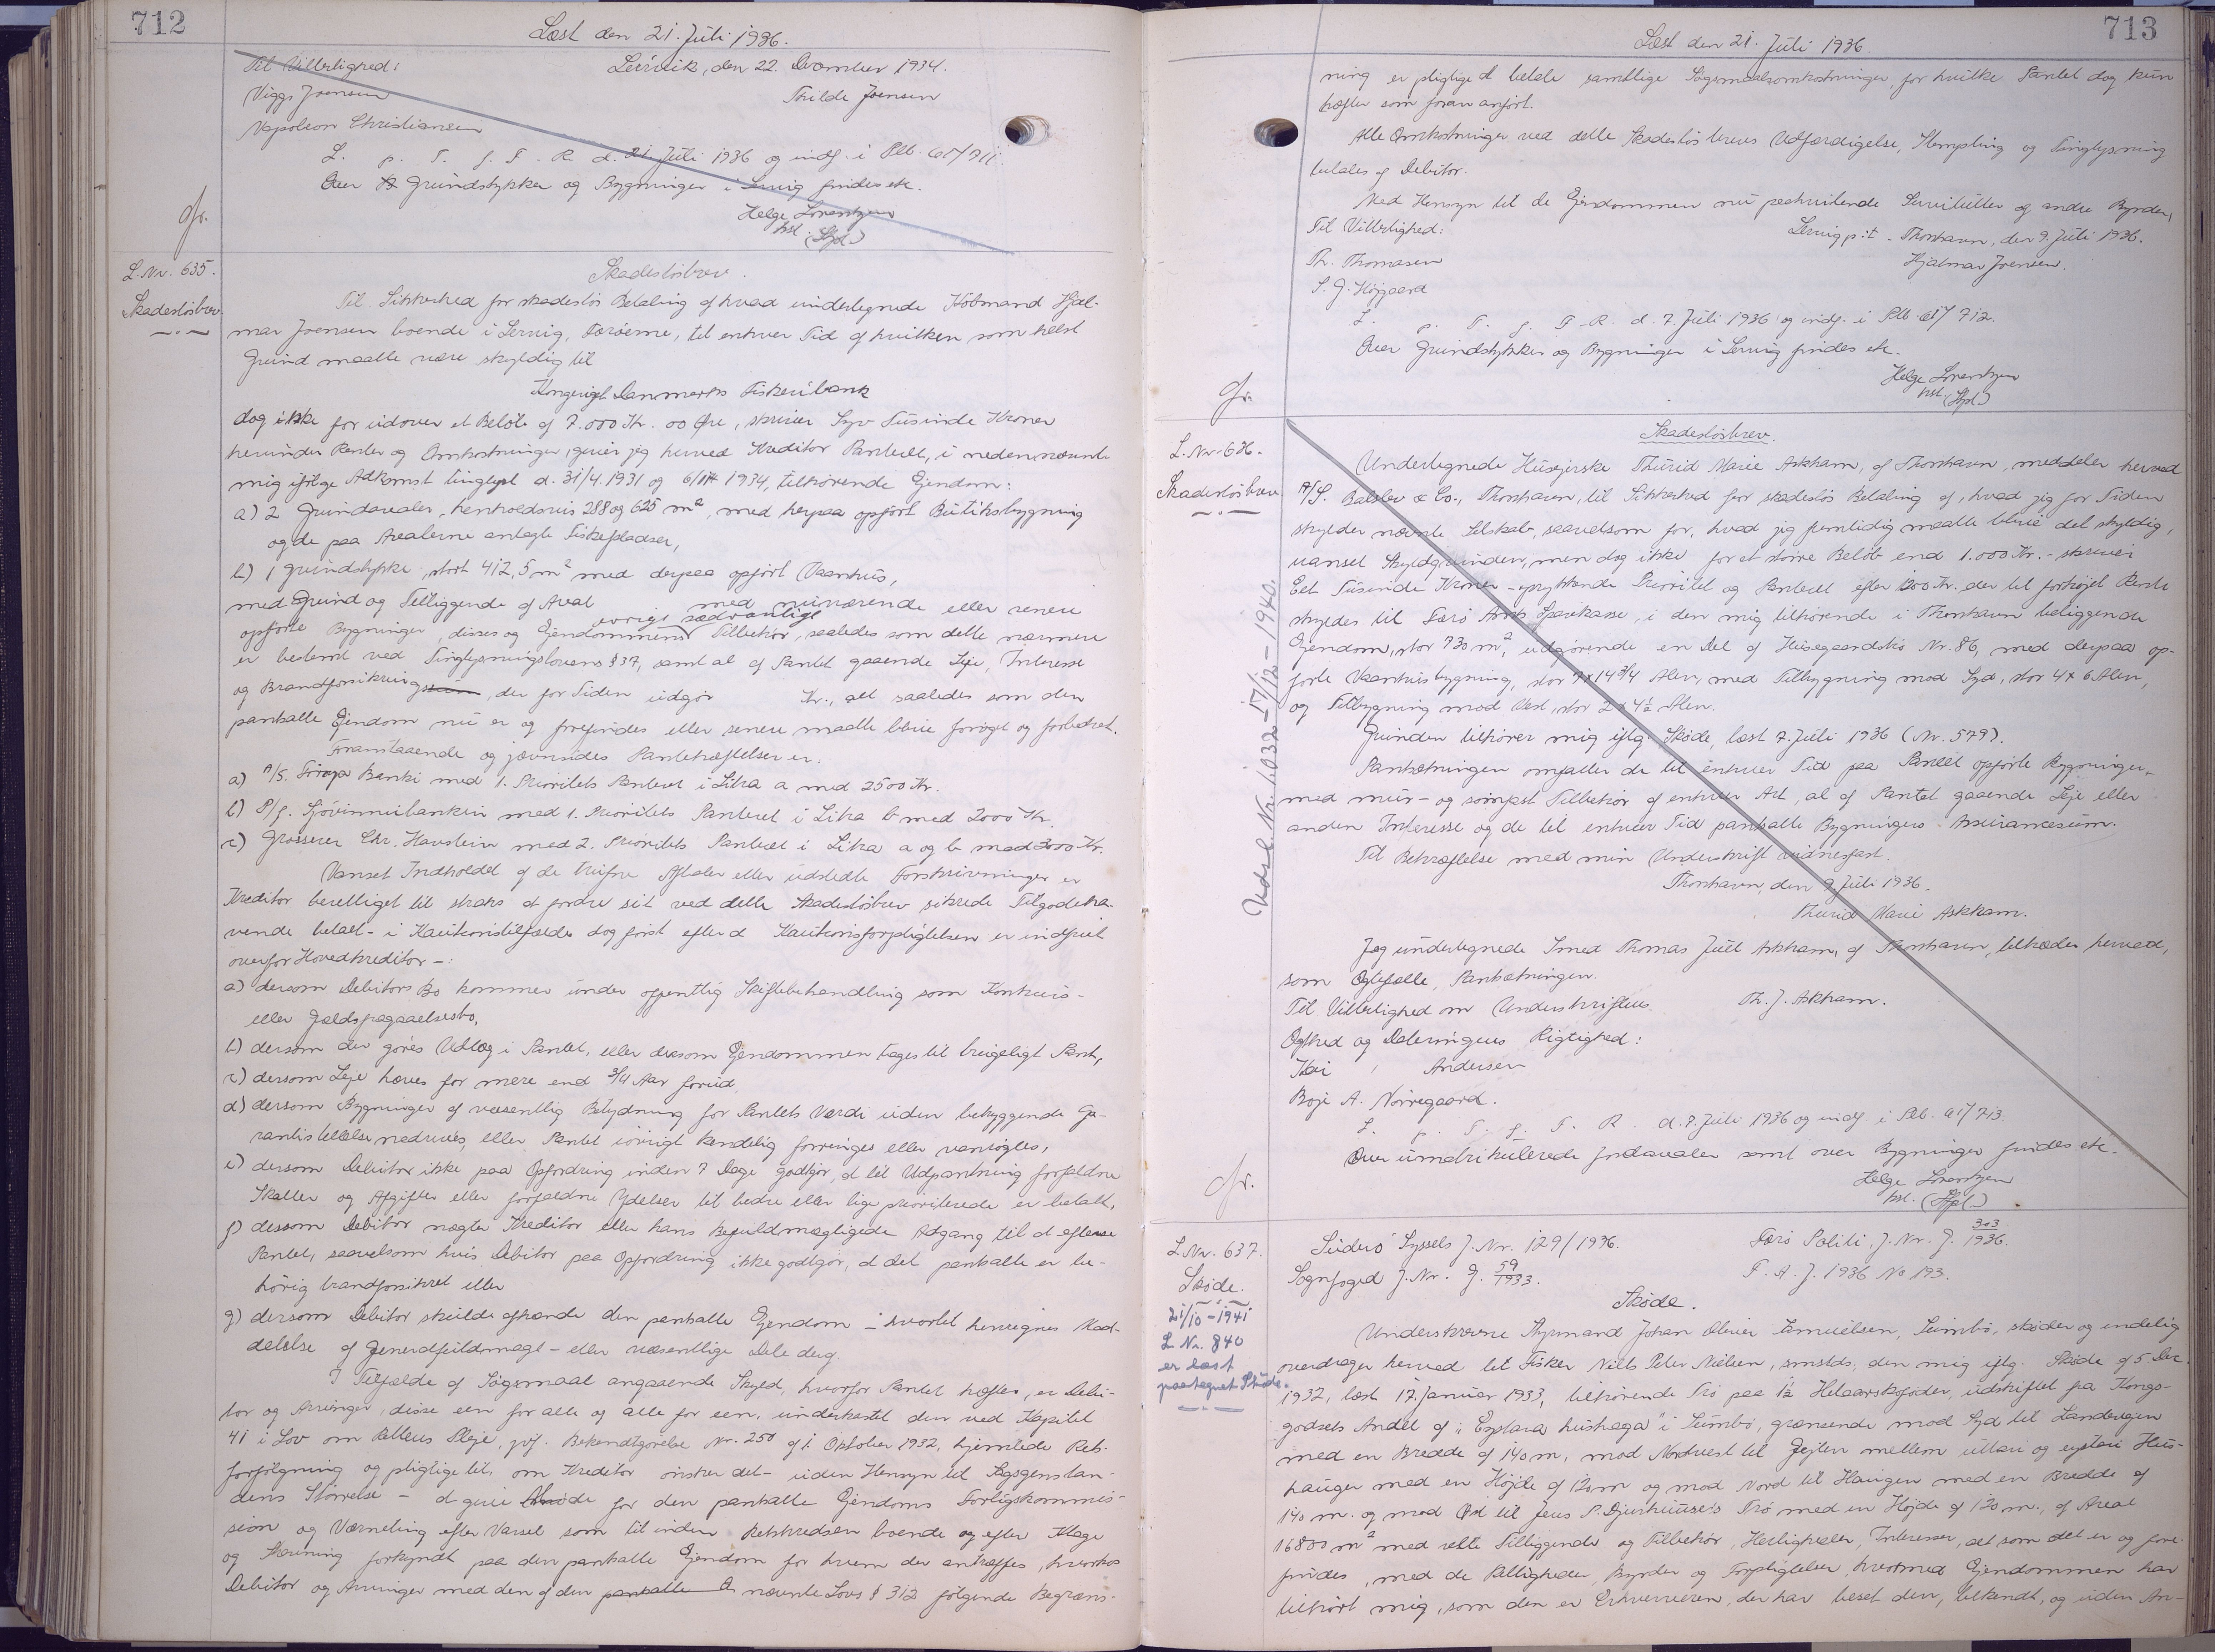 712
Læst den 21. Juli 1936.
Til Vitterlighed:
Leirvik, den 22. December 1934.
Viggo Joensen
Thilda Joensen
Napoleon Christiansen
L. p. T. f. F. R. d. 21. Juli 1936 og indf. i Pb. 61/711.
Over Grundstykker og Bygninger i Lervig findes etc.
Helge Lorentzen
kst. (Spl.)
L. Nr. 635.
Skadesløsbrev.
Skadesløsbrev.
Til Sikkerhed for skadesløs Betaling af hvad undertegnede Købmand Hjal-
mar Joensen boende i Lervig, Færøerne, til enhver Tid af hvilken som helst
Grund maatte være skyldig til
Kongeriget Danmarks Fiskeribank
dog ikke for udover et Beløb af 7.000 Kr. 00 Øre, skriver Syv Tusinde Kroner
herunder Renter og Omkostninger, giver jeg herved Kreditor Panteret, i nedennævnte
mig ifølge Adkomst tinglyst d. 31/4. 1931 og 1934, tilhørende Ejendom:
a) 2 Grundarealer, henholdsvis 288 og 625 m², med herpaa opført Butiksbygning
og de paa Arealerne anlagte Fiskepladser,
b) 1 Grundstykke, stort 412,5 m² med derpaa opført Vaanhus,
med Grund og Tilliggende af Areal med nuværende eller senere
øvrige sædvanlige
opførte Bygninger, disses og Ejendommens Tilbehør, saaledes som dette nærmere
er bestemt ved Tinglysningslovens § 37, samt al af Pantet gaaende Leje, Interesse
og Brandforsikring, der for Tiden udgør Kr., alt saaledes som den
pantsatte Ejendom nu er og forefindes eller senere maatte blive forøget og forbedret.
Foranstaaende og jævnsides Pantehæftelser er:
a) A/S. Føroya Banki med 1. Prioritets Panteret i Litra a med 2500 Kr.
b) P/f. Sjóvinnubankin med 1. Prioritets Panteret i Litra b med 2000 Kr.
c) Grosserer Chr. Havstein med 2. Prioritets Panteret i Litra a og b med 3000 Kr.
Uanset Indholdet af de trufne Aftaler eller udstedte Forskrivninger er
Kreditor berettiget til straks at fordre sit ved dette Skadesløsbrev sikrede Tilgodeha-
vende betalt - i Kautionstilfælde dog først efter at Kautionsforpligtelsen er indfriet
overfor Hovedkreditor -:
a) dersom Debitors Bo kommer under offentlig Skiftebehandling som Konkurs-
eller Gældsfragaaelsesbo,
b) dersom der gøres Udlæg i Pantet, eller dersom Ejendommen tages til brugeligt Pant,
c) dersom Leje hæves for mere end 3/4 Aar forud
d) dersom Bygninger af væsentlig Betydning for Pantets Værdi uden betryggende Ga-
rantistillelse nedrives, eller Pantet iøvrigt kendelig forringes eller vanrøgtes,
e) dersom Debitor ikke paa Opfordring inden 7 Dage godtgør, at til Udpantning forfaldne
Skatter og Afgifter eller forfaldne Ydelser til bedre eller lige prioriterede er betalt,
f) dersom Debitor nægter Kreditor eller hans Befuldmægtigede Adgang til at efterse
Pantet, saavelsom hvis Debitor paa Opfordring ikke godtgør, at det pantsatte er be-
hørig brandforsikret eller
g) dersom Debitor skulde afhænde den pantsatte Ejendom - hvortil henregnes Med-
delelse af Generalfuldmagt - eller væsentlige Dele deraf
I Tilfælde af Søgsmaal angaaende Skyld, hvorfor Pantet hæfter, er Debi-
tor og Arvinger, disse een for alle og alle for een, underkastet den ved Kapitel
41 i Lov om Rettens Pleje, jvf. Bekendtgørelse Nr. 250 af 1. Oktober 1932, hjemlede Rets-
forfølgning og pligtige til, om Kreditor ønsker det - uden Hensyn til Søgsgenstan-
dens Størrelse - at give Møde for den pantsatte Ejendoms Forligskommis-
sion og Værneting efter Varsel som til inden Retskredsen boende og efter Klage
og Stævning forkyndt paa den pantsatte Ejendom for hvem der antræffes, hvorhos
Debitor og Arvinger med den af den pantsatte E nævnte Lovs § 312 følgende Begræns-
713
Læst den 21. Juli 1936.
ning er pligtige at betale samtlige Søgsmaalsomkostninger, for hvilke Pantet dog kun
hæfter som foran anført.
Alle Omkostninger ved dette Skadesløsbrevs Udfærdigelse, Stempling og Tinglysning
betales af Debitor.
Med Hensyn til de Ejendommen nu paahvilende Servitutter og andre Byrder,
Til Vitterlighed:
Lervig p. t. Thorshavn, den 9. Juli 1936.
Th. Thomasen
Hjalmar Joensen.
S. J. Højgaard
L. p. T. f. F. R. d. 7. Juli 1936 og indf. i Pb. 61/712.
Over Grundstykker og Bygninger i Lervig findes etc.
Helge Lorentzen
kst. (Spl.)
L. Nr. 636.
Skadesløsbrev
Udsl. Nr. 1032 - 17/12 - 1940.
Skadesløsbrev.
Undertegnede Husejerske Thurid Marie Askham, af Thorshavn, meddeler herved
A/S. Balslev & Co., Thorshavn, til Sikkerhed for skadesløs Betaling af, hvad jeg for Tiden
skylder nævnte Selskab, saavelsom for, hvad jeg fremtidig maatte blive det skyldig,
uanset Skyldgrunden, men dog ikke for et større Beløb end 1.000 Kr. - skriver
Eet Tusinde Kroner - oprykkende Prioritet og Panteret efter 1200 Kr. der til forhøjet Rente
skyldes til Færø Amts Sparekasse, i den mig tilhørende i Thorshavn beliggende
Ejendom, stor 730 m², udgørende en Del af Husegaardsks Nr. 86, med derpaa op-
førte Vaanhusbygning, stor 9 x 14 3/4 Alen, med Tilbygning mod Syd, stor 4 x 6 Alen,
og Tilbygning mod Vest, stor 2 x 4½ Alen.
Grunden tilhører mig iflg. Skøde, læst 7. Juli 1936 (Nr. 579).
Pantsætningen omfatter de til enhver Tid paa Pantet opførte Bygninger,
med mur- og sømfast Tilbehør af enhver Art, al af Pantet gaaende Leje eller
anden Interesse og de til enhver Tid pantsatte Bygningers Assurancesum.
Til Bekræftelse med min Underskrift vidnesfast.
Thorshavn, den 9. Juli 1936.
Thurid Marie Askham.
Jeg undertegnede Smed Thomas Juul Askham, af Thorshavn, tiltræder herved,
som Ægtefælle, Pantsætningen.
Til Vitterlighed om Underskriftens
Th. J. Askham.
Ægthed og Dateringens Rigtighed:
Kai Andersen
Boje A. Nørregaard.
L. p. T. f. F. R. d. 7. Juli 1936 og indf. i Pb. 61/713.
Over umatrikulerede Jordarealer samt over Bygninger findes etc.
Helge Lorentzen
kst. (Spl.)
L. Nr. 637.
Skøde.
21/10 - 1941
L Nr. 840
er læst
paategnet Skøde.
Suderø Syssels J. Nr. 129/1936.
Færø Politi, J. Nr. J. 303/1936.
Sognefoged J. Nr. J. 59/1933.
F. A. J. 1936 No 193.
Skøde.
Underskrevne Styrmand Johan Oliver Samuelsen, Sumbø, skøder og endelig
overdrager herved til Fisker Niels Peter Nielsen, smstds., den mig iflg. Skøde af 5 Dec.
1932, læst 17. Januar 1933, tilhørende Trø paa 12 Helaarskøder, udskiftet fra Kongs-
godsets Andel af "Eystara hushaga" i Sumbø, grænsende mod Syd til Landevejen
med en Bredde af 140 m, mod Nordvest til Gejlen mellem uttari og eystari Hus-
hauger med en Højde af 120 m og mod Nord til Haugen med en Bredde af
140 m. og mod Øst til Jens P. Djurhuuse's Trø med en Højde af 120 m., af Areal
16800 m² med rette Tilliggende og Tilbehør, Herligheder, Interesser, alt som det er og fore-
findes, med de Rettigheder, Byrder og Forpligtelser, hvormed Ejendommen har
tilhørt mig, som den er Erhververen, der har beset den, bekendt, og uden An-